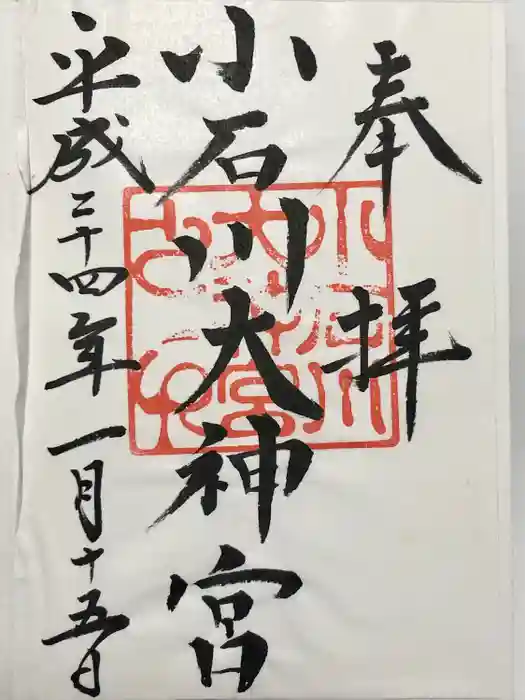 奉拝
小石川大神宮
平成二十四年一月十五日